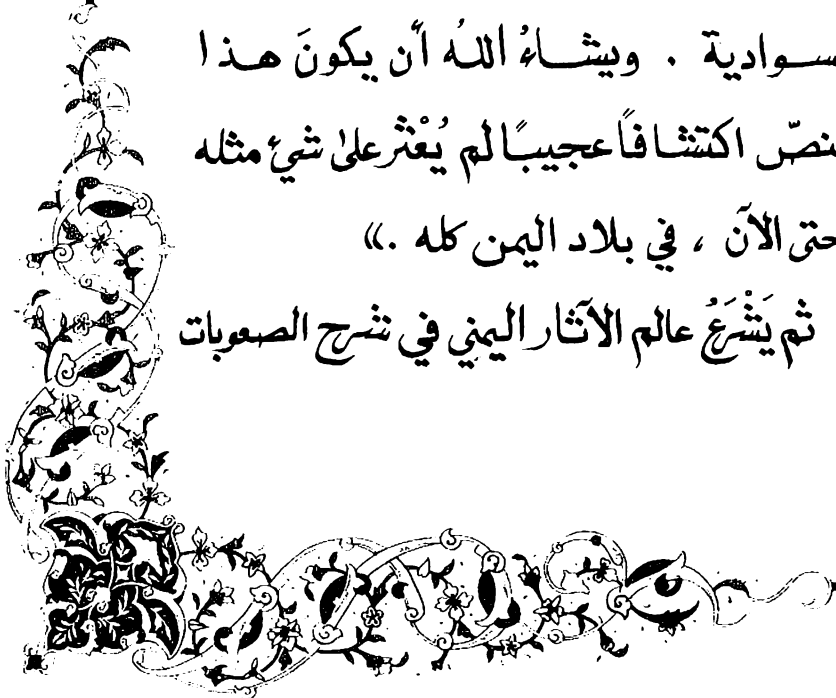 سوادية . ويشاءُ اللهُ أن يكونَ هذا
نصّ اكتشافاً عجيبًا لم يُعْثر على شيءٍ مثله
حتى الآن ، في بلاد اليمن كله .»
ثم يَشْرَعُ عالم الآثار اليمني في شرح الصعوبات